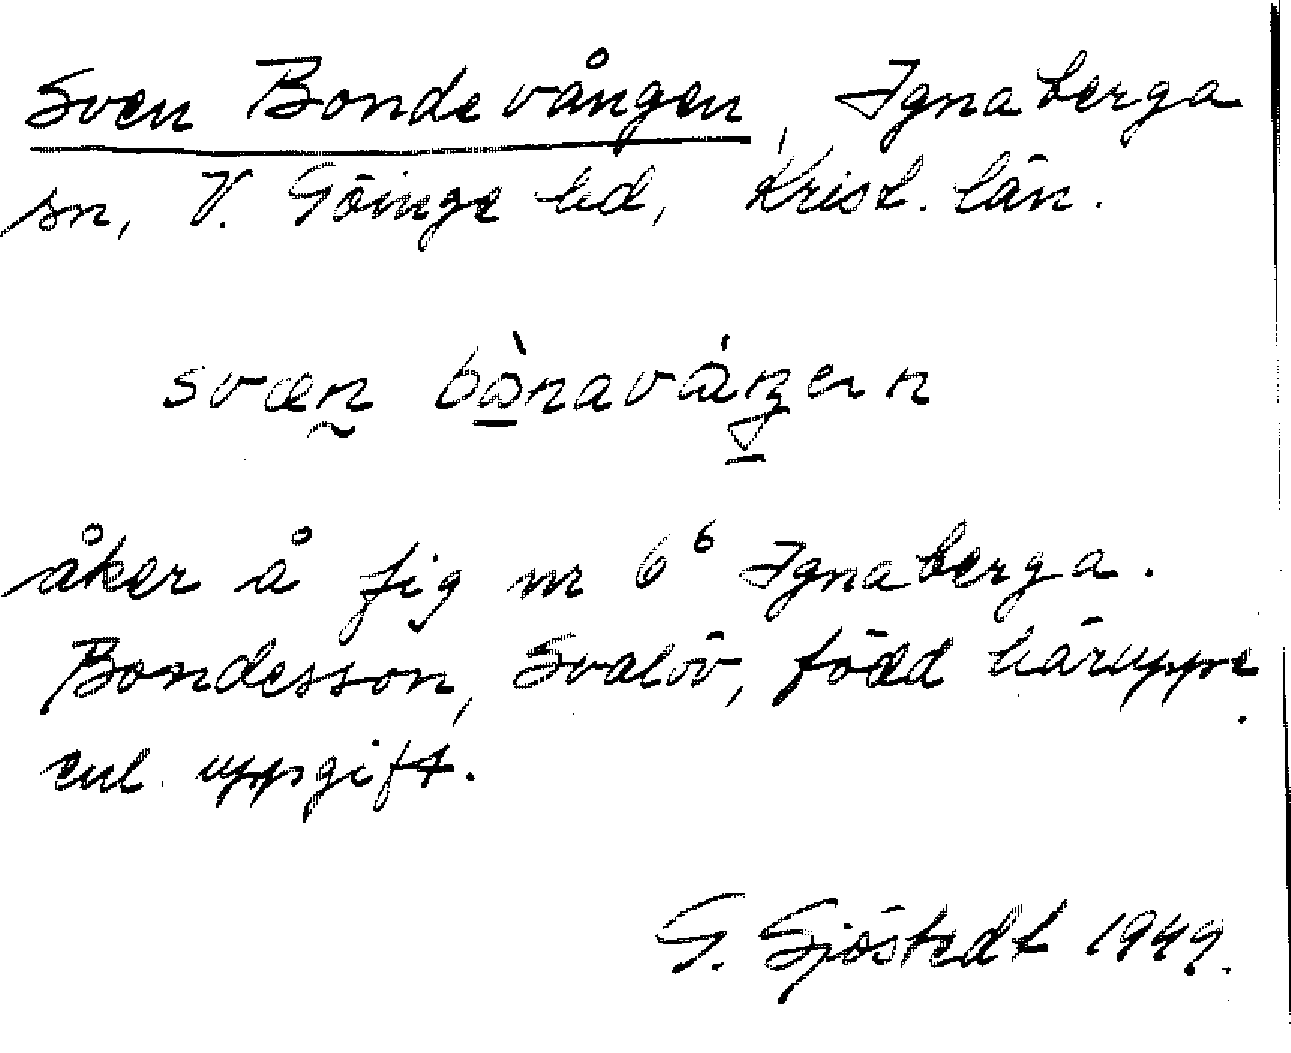 Sven Bondevången, Ignaberga
sn, V. Göinge hd, Krist. län.
svæn bònaváŋen
åker å fig nr 6⁶ Ignaberga.
Bondesson, Svalöv, född häruppe
enl. uppgift.
G. Sjöstedt 1949.